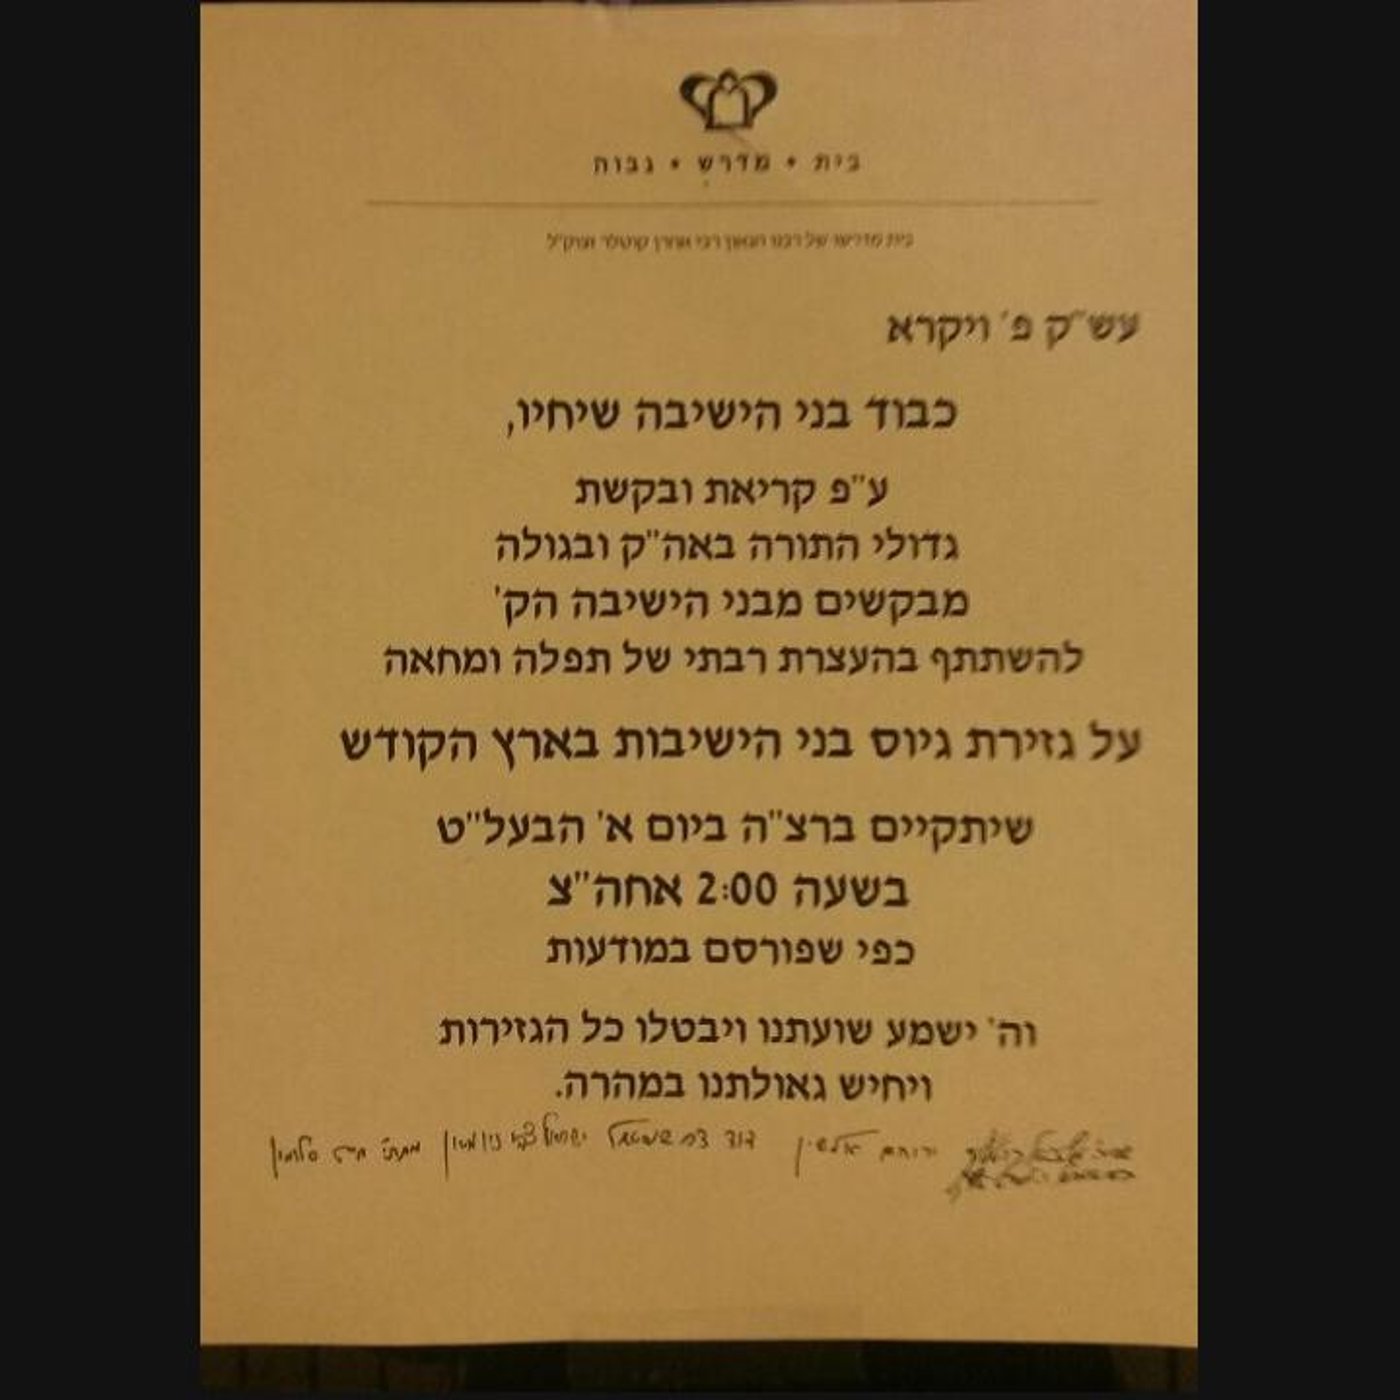 בית * מדרש * גבוה
בית מדרשו של רבנו הגאון רבי אהרן קוטלר זצוק"ל
עש"ק פ' ויקרא
כבוד בני הישיבה שיחיו,
ע"פ קריאת ובקשת
גדולי התורה באה"ק ובגולה
מבקשים מבני הישיבה הק'
להשתתף בהעצרת רבתי של תפלה ומחאה
על גזירת גיוס בני הישיבות בארץ הקודש
שיתקיים ברצ"ה ביום א' הבעל"ט
בשעה 2:00 אחה"צ
כפי שפורסם במודעות
וה' ישמע שועתנו ויבטלו כל הגזירות
ויחיש גאולתנו במהרה.
ירוחם אלשין דוד צבי ישראל צבי ניומאן מתתי' חיים סלומון